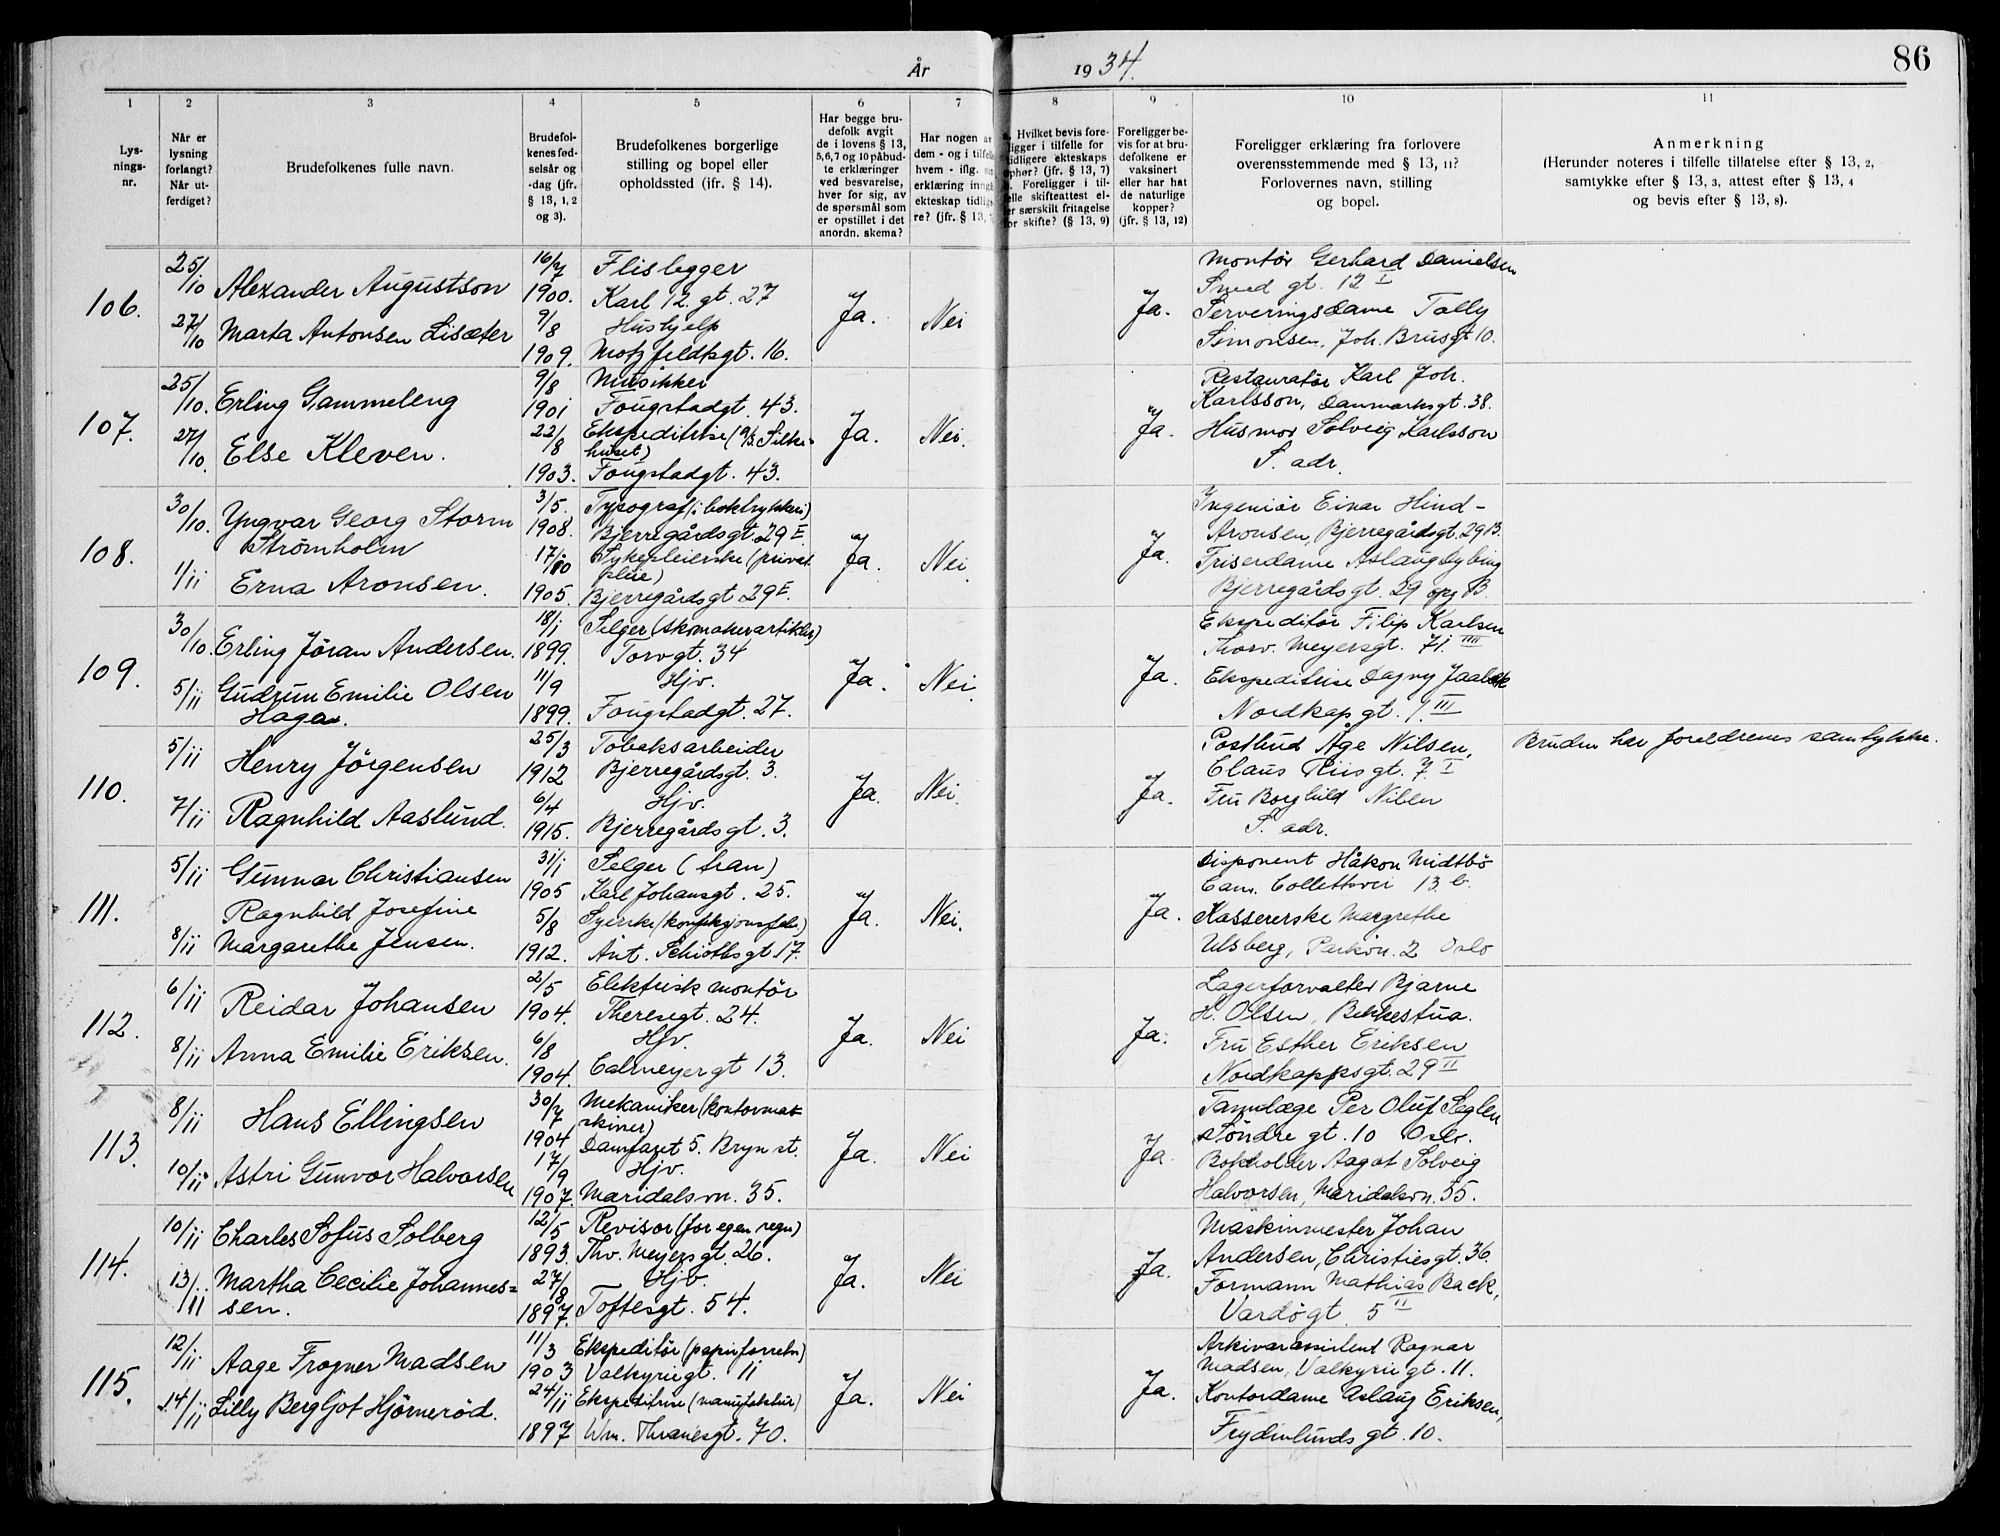 År 1934.
86
1
2
3
4
5
6
7
8
9
10
11
Lys-
nings-
nr.
Når er
lysning
forlangt?
Når ut-
ferdiget?
Brudefolkenes fulle navn.
Brudefol-
kenes fød-
selsår og
-dag (jfr.
§ 13, 1, 2
og 3).
Brudefolkenes borgerlige
stilling og bopel eller
opholdssted (jfr. § 14).
Har begge bru-
defolk avgit
de i lovens § 13,
5, 6, 7 og 10 påbud-
te erklæringer
ved besvarelse,
hver for sig, av
de spørsmål som
er opstillet i det
anordn. skema?
Har nogen av
dem - og i tilfelle
hvem - iflg. sin
erklæring inngå
ekteskap tidlig-
re? (jfr. § 13, 7
Hvilket bevis fore-
ligger i tilfelle for
tidligere ekteskaps
ophør? (jfr. § 13, 7)
Foreligger i til-
felle skifteattest el-
er særskilt fritagelse
for skifte? (§ 13, 9)
Foreligger be-
vis for at bru-
defolkene er
vaksinert
eller har hat
de naturlige
kopper?
(jfr. § 13, 12)
Foreligger erklæring fra forlovere
overensstemmende med § 13, 11?
Forlovernes navn, stilling
og bopel.
Anmerkning
(Herunder noteres i tilfelle tillatelse efter § 13, 2,
samtykke efter § 13, 3, attest efter § 13, 4
og bevis efter § 13, 8).
106.
25/10 Alexander Augustson
27/10 Marta Antonsen Lisæter
16/7
1900.
9/8
1909.
Flislegger
Karl 12. gt. 27
Hushjelp
Motzfeldtsgt. 16.
Ja.
Nei
Ja.
Montør Gerhard Danielsen
Smed gt. 12 I
Serveringsdame Tolly
Simonsen, Joh. Brusgt 10.
107.
25/10. Erling Gammeleng
27/10. Else Kleven.
9/8
1901
22/8
1903.
Musikker
Fougstadgt. 43.
Ekspeditrise (A/S Silke-
huset)
Fougstadgt. 43.
Ja.
Nei.
Ja.
Restauratør Karl Joh.
Karlsson, Danmarksgt. 38.
Husmor Solveig Karlsson
S. adr.
108.
30/10. Yngvar Georg Storm
Strømholm
1/11 Erna Aronsen.
3/5.
1908.
17/10
1905.
Typograf (i boktrykkeri)
Bjerregårdsgt. 29 I.
Sykepleierske (privat
pleie)
Bjerregårdsgt 29 I.
Ja.
Nei
Ja.
Ingeniør Einar Hind-
Aronsen, Bjerregårdsgt. 29 B.
Friserdame Aslaug
Bjerregårdsgt. 29 opg B.
109.
30/10. Erling Jöran Andersen.
5/11 Gudrun Emilie Olsen
Haga.
18/1
1899.
11/9
1899.
Selger (skomakerartikler)
Torvgt. 34
Hjv.
Fougstadgt. 27.
Ja.
Nei
Ja.
Ekspeditør Filip Karlsen
Thorv. Meyersgt. 71. IIII
Ekspeditrise Dagny
Nordkapgt. 9. III
110.
5/11 Henry Jörgensen
7/11 Ragnhild Aaslund.
25/3
1912
6/4
1915.
Tobaksarbeider
Bjerregårdsgt. 3.
Hjv.
Bjerregårdsgt. 3.
Ja.
Nei.
Ja.
Postbud Åge Nilsen,
Claus Riis gt. 7. I
Fru Borghild Nilsen
S. adr.
Bruden har foreldrenes samtykke.
111.
5/11 Gunnar Christiansen
Ragnhild Josefine
8/11 Margarethe Jensen.
31/1
1905
5/8
1912.
Selger (tran)
Karl Johansgt. 25.
Syerske
Ant. Schiøthsgt. 17.
Ja.
Nei.
Ja.
Disponent Håkon Midtbö
Cam. Collettsvei 13. b.
Kassererske Margrethe
Ulsberg, Parkvn. 2 Oslo
112.
6/11 Reidar Johansen
8/11 Anna Emilie Eriksen.
2/5
1904.
6/8
1904.
Elektrisk montør
Theresegt. 24.
Hjv.
Calmeyergt 13.
Ja.
Nei
Ja.
Lagerforvalter Bjarne
H. Olsen, Bekkestua.
Fru Esther Eriksen
Nordkappsgt. 29 II
113.
8/11 Hans Ellingsen
10/11 Astri Gunvor Halvorsen
30/7
1904
17/9
1907.
Mekaniker (kontormas-
skiner)
Damfaret 5. Bryn st.
Hjv.
Maridalsvn. 35.
Ja.
Nei
Ja
Tannlæge Per Oluf Seglen
Söndre gt. 10 Oslo.
Bokholder Aagot Solveig
Halvorsen, Maridalsvn. 35.
114.
10/11 Charles Sofus Solberg
13/11 Martha Cecilie Johannes=
sen.
12/5
1893.
27/8
1897.
Revisor (for egen regn)
Thv. Meyersgt. 26.
Hjv.
Toftesgt. 54.
Ja.
Nei
Ja.
Maskinmester Johan
Andersen, Christiesgt. 36.
Formann Mathias Back,
Vardøgt. 5 II
115.
12/11 Aage Frogner Madsen
14/11 Lilly Bergljot Hjörnerød.
11/3
1903
24/11
1897
Ekspeditör (papirforretn)
Valkyriegt. 11
Ekspeditrise (manufaktur)
Wm. Thranesgt. 70.
Ja.
Nei
Ja.
Arkivarassistent Ragnar
Madsen, Valkyriegt. 11.
Kontordame Aslaug Eriksen,
Frydenlunds gt. 10.